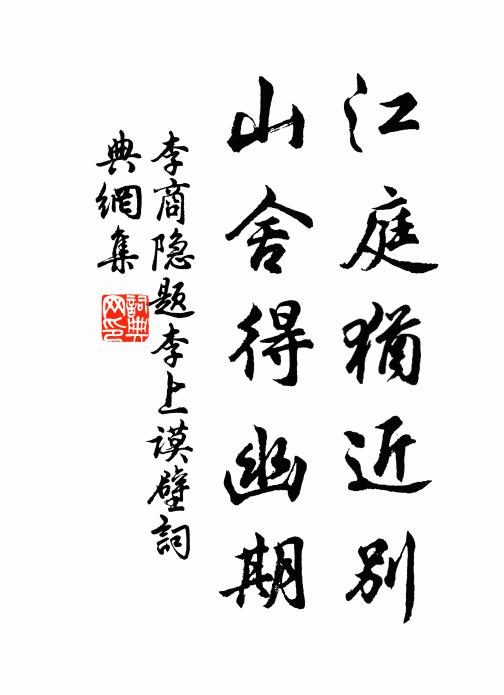 江庭猶近別
山舍得幽期
李商隐題李上謨壁詞
典網集
詞典
网印